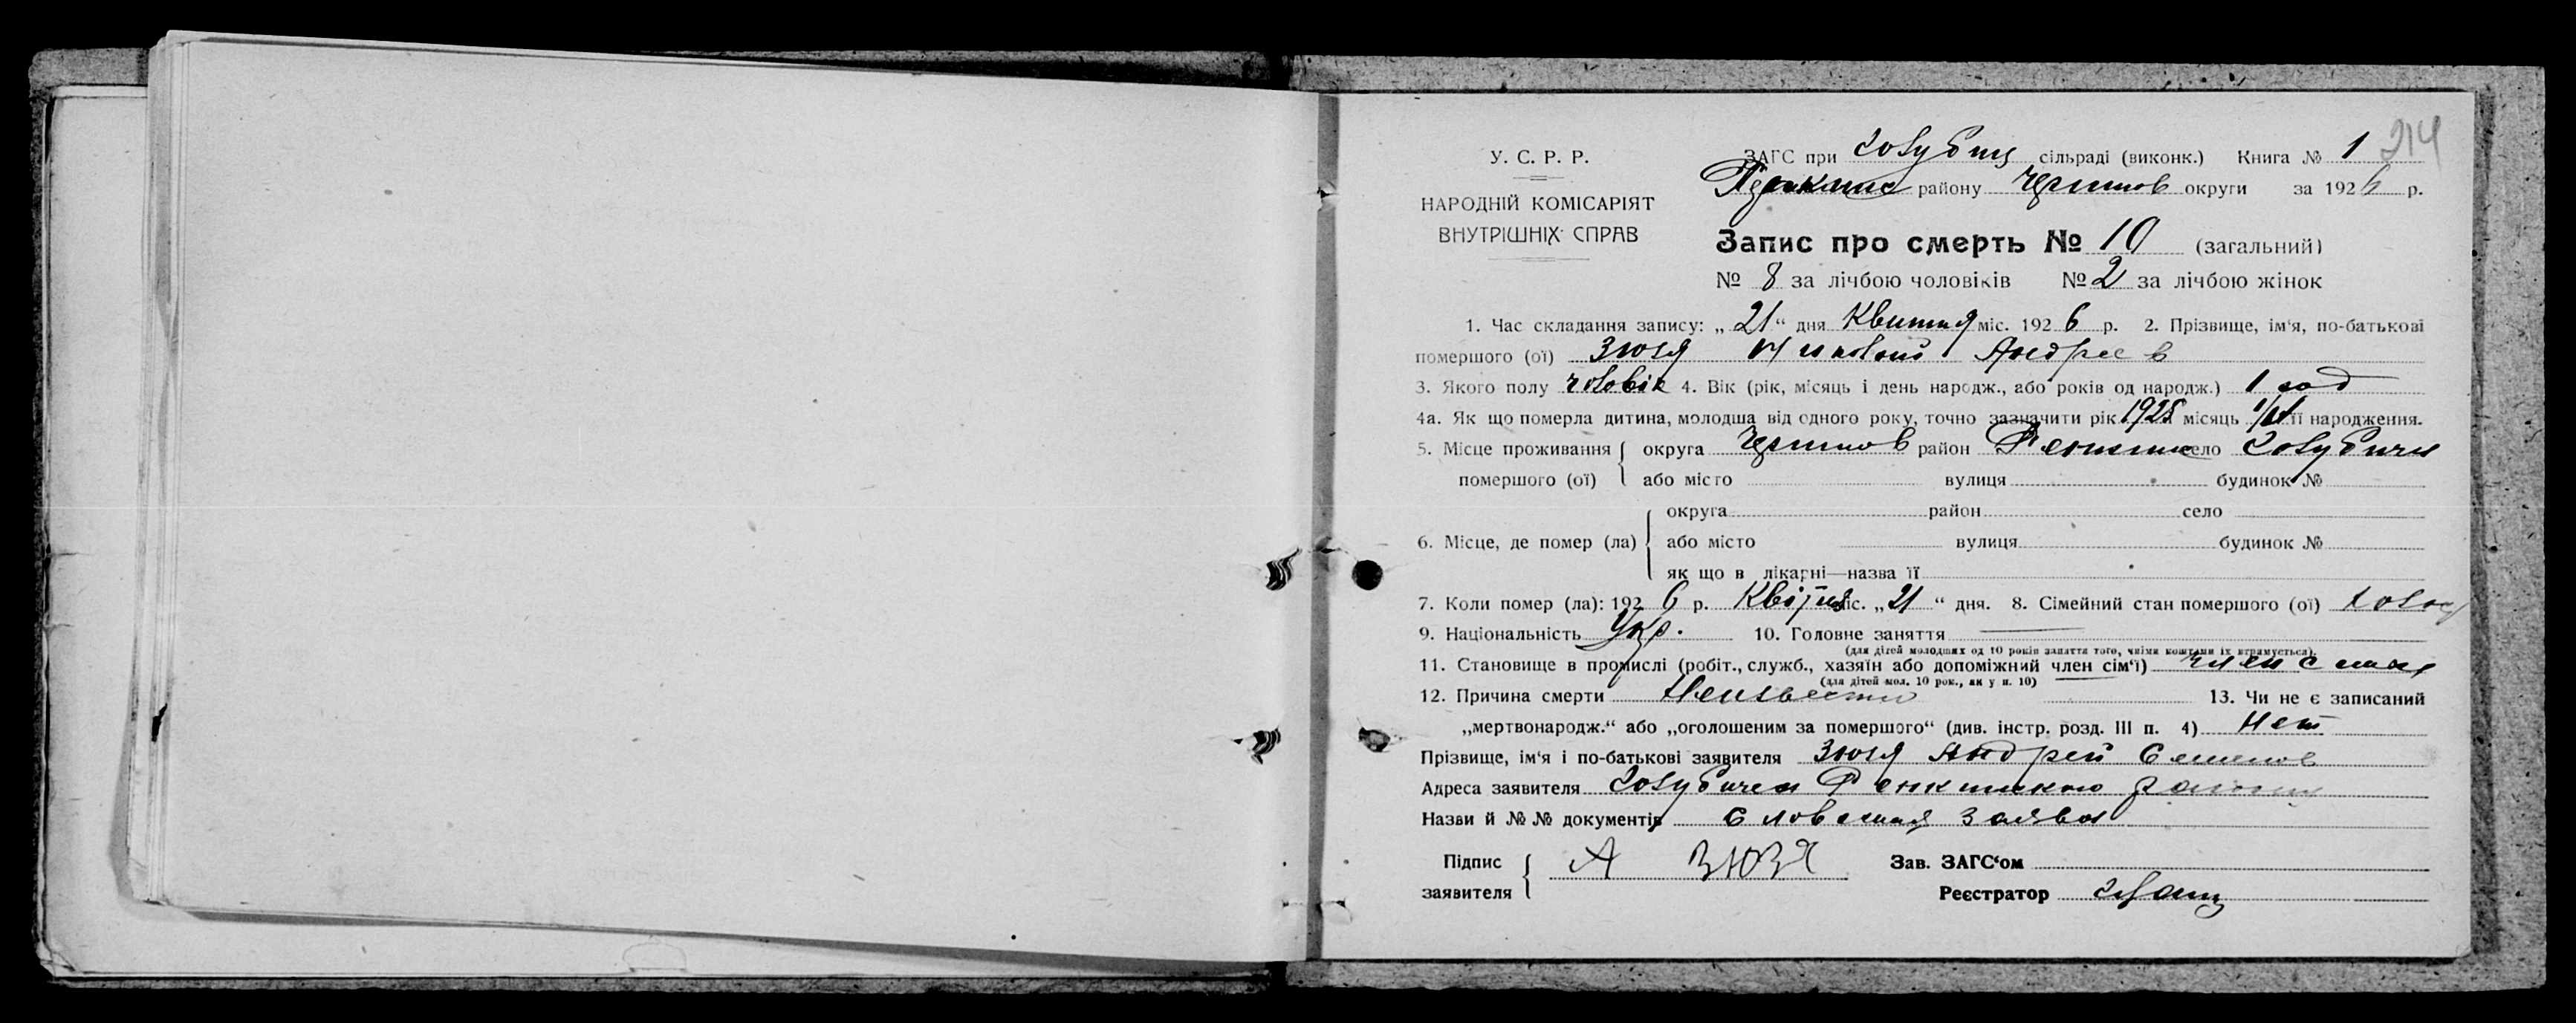 214
У. С. Р. Р.
НАРОДНІЙ КОМІСАРІЯТ
ВНУТРІШНІХ СПРАВ
ЗАГС при Голубиц сільраді (виконк.) Книга № 1
району Черныгов округи за 1926 р.
Запис про смерть № 10 (загальний)
№ 8 за лічбою чоловіків № 2 за лічбою жінок
1. Час складання запису: „21“ дня Квитня міс. 1926 р. 2. Прізвище, ім‘я, по-батькові
помершого (ої) Зюзя Николай Андреев
3. Якого полу чоловік 4. Вік (рік, місяць і день народж., або років од народж.) 1 год
4а. Як що померла дитина, молодша від одного року, точно зазначити рік 1925 місяць її народження.
5. Місце проживання помершого (ої) { округа район село Голубичи
або місто вулиця будинок №
6. Місце, де помер (ла) { округа район село
або місто вулиця будинок №
як що в лікарні—назва її
7. Коли помер (ла): 1926 р. Квітня міс. „21“ дня. 8. Сімейний стан помершого (ої) холос
9. Національність Укр. 10. Головне заняття
(для дітей молодших од 10 років заняття того, чиїми коштами їх втримується)
11. Становище в промислі (робіт., служб., хазяїн або допоміжний член сім‘ї) член семьи
(для дітей мол. 10 рок., як у п. 10)
12. Причина смерти Неизвестно 13. Чи не є записаний
„мертвонародж.“ або „оголошеним за помершого“ (див. інстр. розд. III п. 4) Нет
Прізвище, ім‘я і по-батькові заявителя Зюзя Андрей Семенов
Адреса заявителя Голубичи района
Назви й №№ документів Словесная Заява
Підпис заявителя { А Зюзя Зав. ЗАГС‘ом
Реєстратор